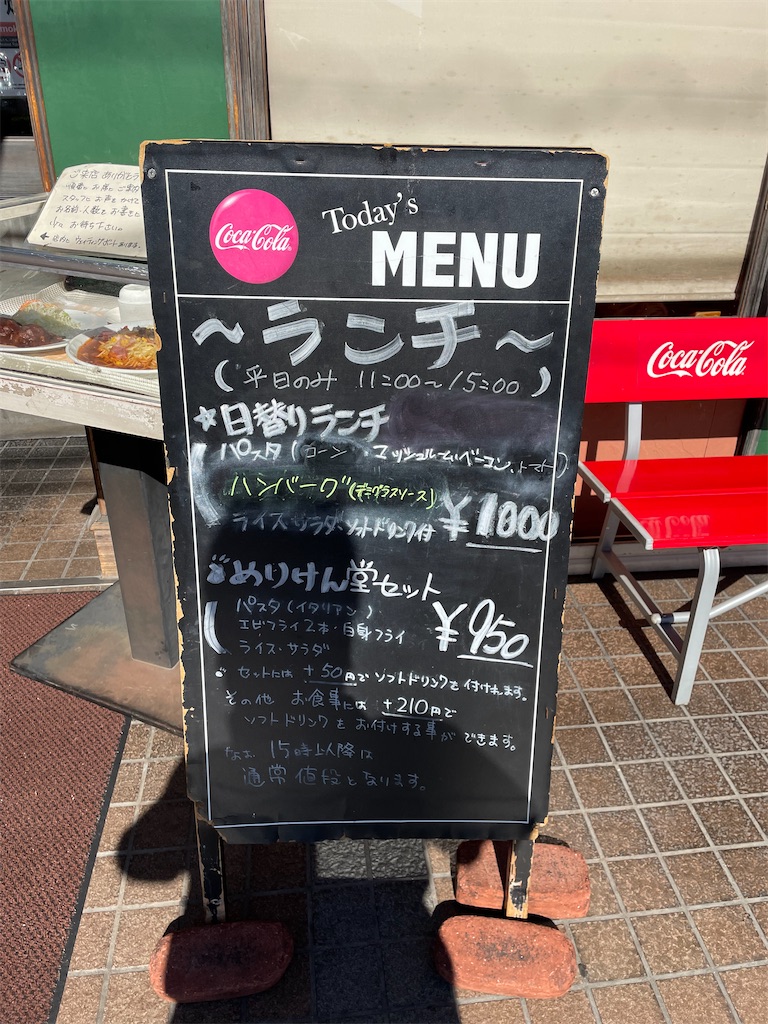 Coca-Cola
Today's
MENU
~ランチ~
(平日のみ 11:00~15:00)
☆日替りランチ
パスタ(コーン、マッシュルーム、ベーコン、トマト)
ハンバーグ(デミグラスソース)
ライス・サラダ ソフトドリンク付 ¥1000
めりけん堂セット
パスタ(イタリアン)
エビフライ2本・白身フライ
ライス・サラダ
¥950
セットには +50円でソフトドリンクを付けれます。
その他 お食事には +210円で
ソフトドリンクをお付けする事ができます。
なお 15時以降は
通常値段となります。
ご来店 ありがとう
スタッフに お声を かけて
お名前・人数を お書きに
お待ち下さい。
Coca-Cola
Coca-Cola